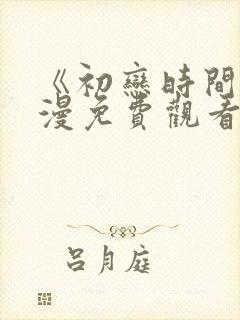 《初戀時間
漫免費觀看
呂月庭